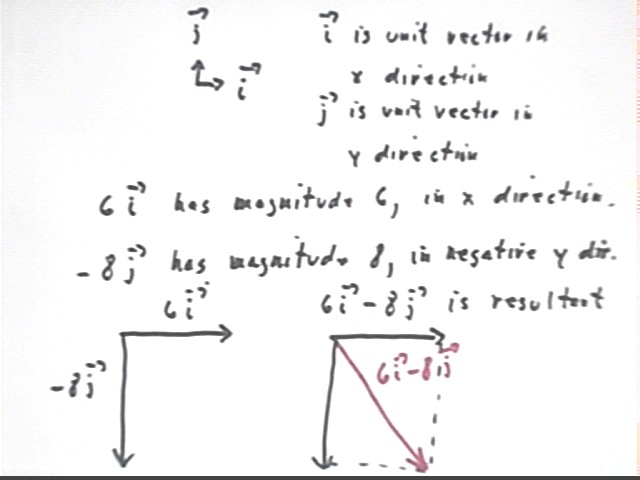 j⃗ i⃗ is unit vector in
i⃗ x direction
j⃗ is unit vector in
y direction
6 i⃗ has magnitude 6, in x direction.
-8 j⃗ has magnitude 8, in negative y dir.
6 i⃗ 6i⃗ - 8j⃗ is resultant
-8j⃗ 6i⃗-8j⃗